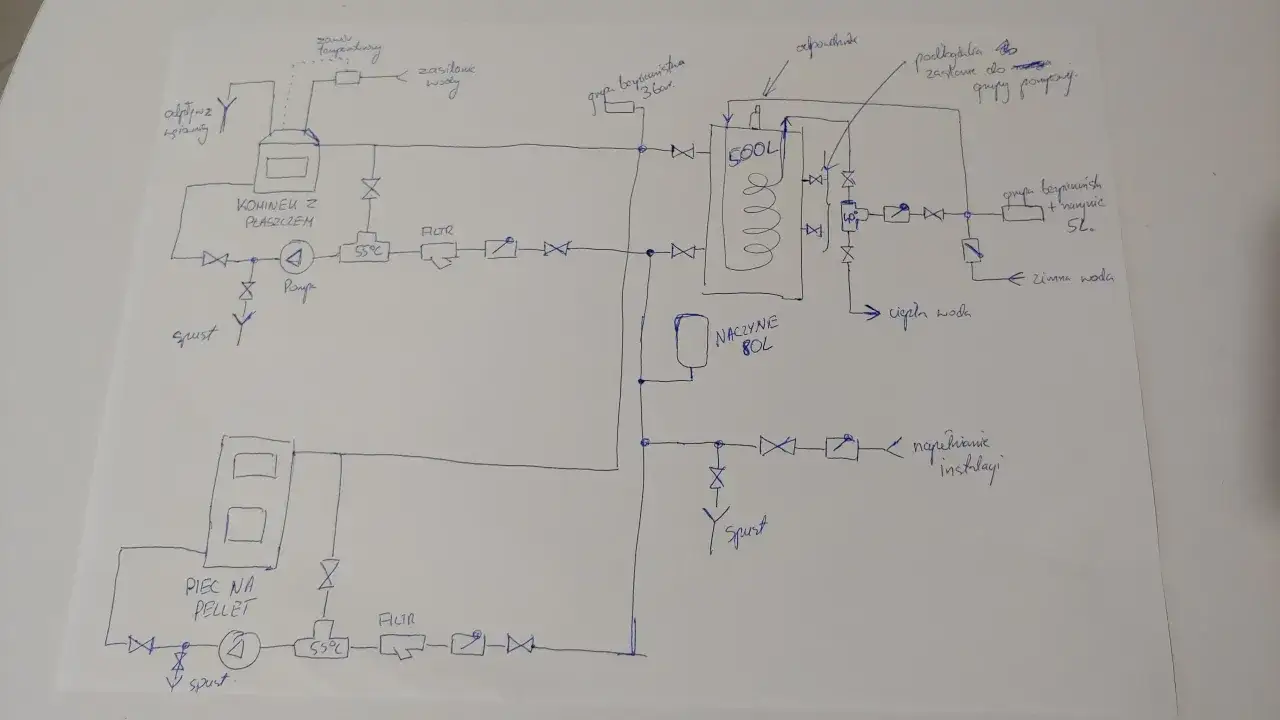 zawór
temperatury
zasilanie
wody
odpływ z
wężownicy
KOMINEK Z
PŁASZCZEM
55°C
FILTR
Pompa
spust
grupa bezpieczeństwa
3 bar.
odpowietrznik
podłączenie do
zasilanie do
grupy pompowej.
500L
grupa bezpieczeństw
+ naczynie
5L.
zimna woda
ciepła woda
NACZYNIE
80L
napełnianie
instalacji
spust
PIEC NA
PELLET
FILTR
55°C
spust